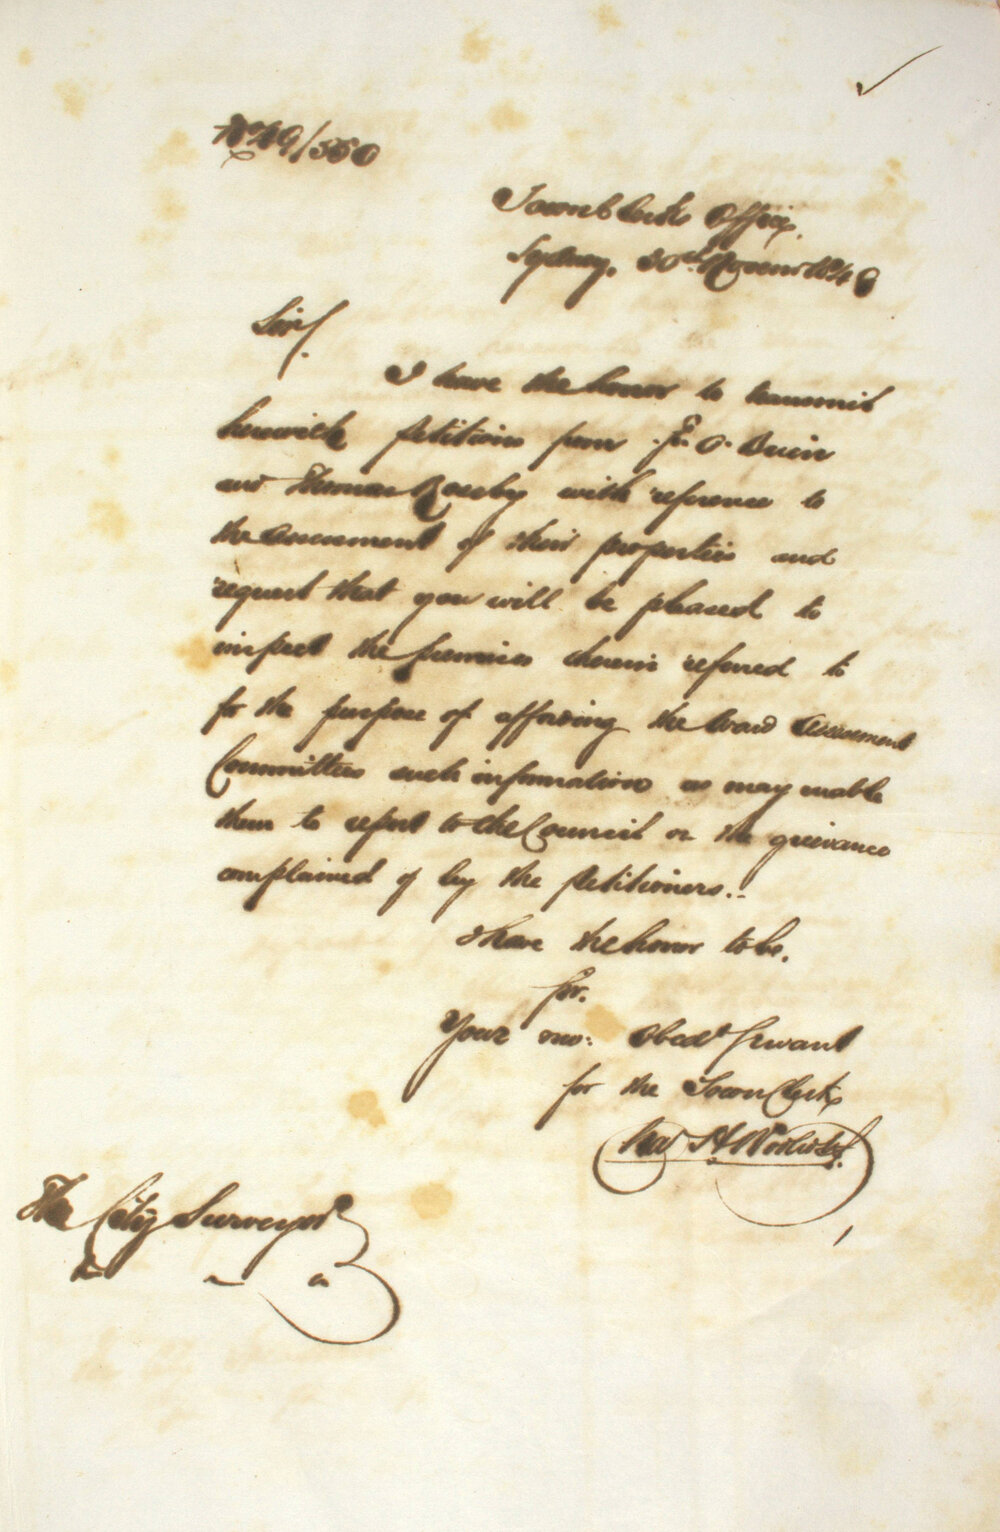 Town Clerk's Office,
Sydney, 30th Novemr 184
Sir/
I have the honor to transmit
herewith petitions from O'Brien
and Thomas with reference to
the assessment of their properties and
request that you will be pleased to
inspect the premises therein referred to
for the purpose of affording the Ward Assessment
Committees such information as may enable
them to report to the Council on the grievance
complained of by the petitioners.
I have the honor to be,
Sir,
Your mo: Obedt Servant
for the Town Clerk
The City Surveyor